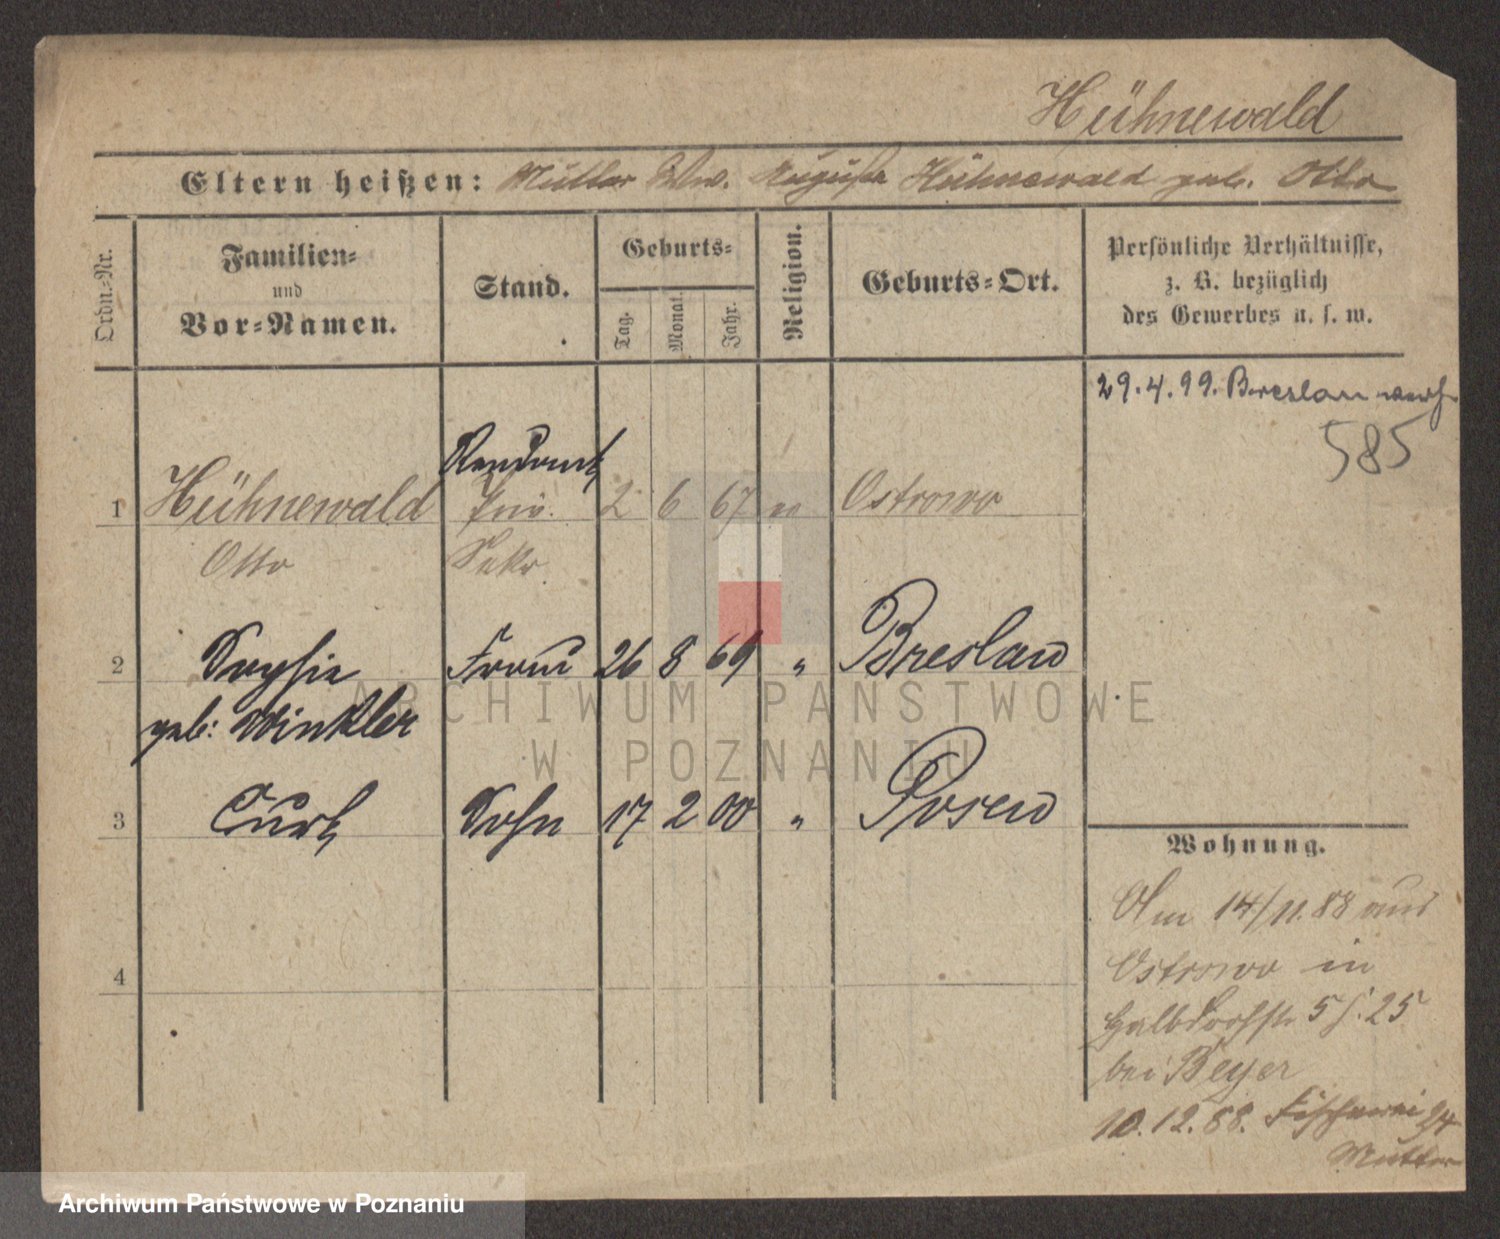 Hühnewald
Eltern heißen: Mutter Ww. Auguste Hühnewald geb. Otto
Ordn.-Nr.
Familien-
und
Vor-Namen.
Stand.
Geburts-
Tag.
Monat.
Jahr.
Religion.
Geburts-Ort.
Persönliche Verhältnisse,
z. B. bezüglich
des Gewerbes u. s. w.
29.4.99. Breslau
585
Rendant
1 Hühnewald priv. 2 6 67 Ostrowo
Otto Sekr.
2 Sophie Frau 26 8 69 " Breslau
geb: Winkler
3 Curt Sohn 17 2 00 " Posen
4
Wohnung.
Am 14/11.88 aus
Ostrowo in
Halbdorfstr 5 25
bei Beyer
10.12.88. Fischerei 24
Mutter
ARCHIWUM PAŃSTWOWE
W POZNANIU
Archiwum Państwowe w Poznaniu